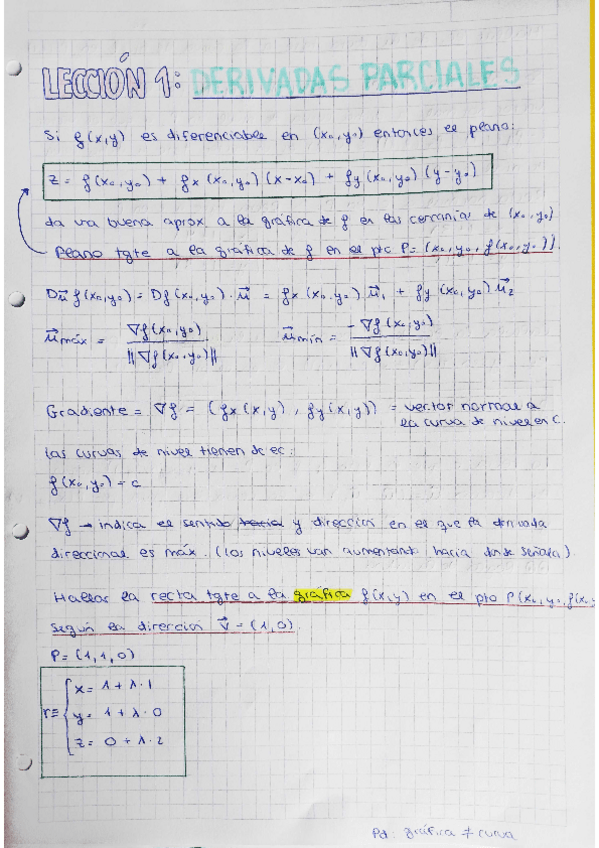 LECCIÓN 1: DERIVADAS PARCIALES
Si f(x,y) es diferenciable en (x₀,y₀) entonces el plano:
z = f(x₀,y₀) + fx(x₀,y₀)(x-x₀) + fy(x₀,y₀)(y-y₀)
da una buena aprox. a la gráfica de f en las cercanías de (x₀,y₀)
Plano tgte a la gráfica de f en el pto P=(x₀,y₀,f(x₀,y₀)).
Du⃗ f(x₀,y₀) = Df(x₀,y₀)·u⃗ = fx(x₀,y₀)u⃗₁ + fy(x₀,y₀)u⃗₂
u⃗máx = ∇f(x₀,y₀) / ||∇f(x₀,y₀)|| u⃗mín = -∇f(x₀,y₀) / ||∇f(x₀,y₀)||
Gradiente = ∇f = (fx(x,y), fy(x,y)) = vector normal a
la curva de nivel en C.
Las curvas de nivel tienen de ec:
f(x₀,y₀) = c
∇f → indica el sentido y dirección en el que la derivada
direccional es máx. (Los niveles van aumentando hacia donde señala).
Hallar la recta tgte a la gráfica f(x,y) en el pto P(x₀,y₀,f(x₀,y
según la dirección v⃗ = (1,0).
P = (1,1,0)
x = 1 + λ·1
r ≡ y = 1 + λ·0
z = 0 + λ·2
Pd: gráfica ≠ curva